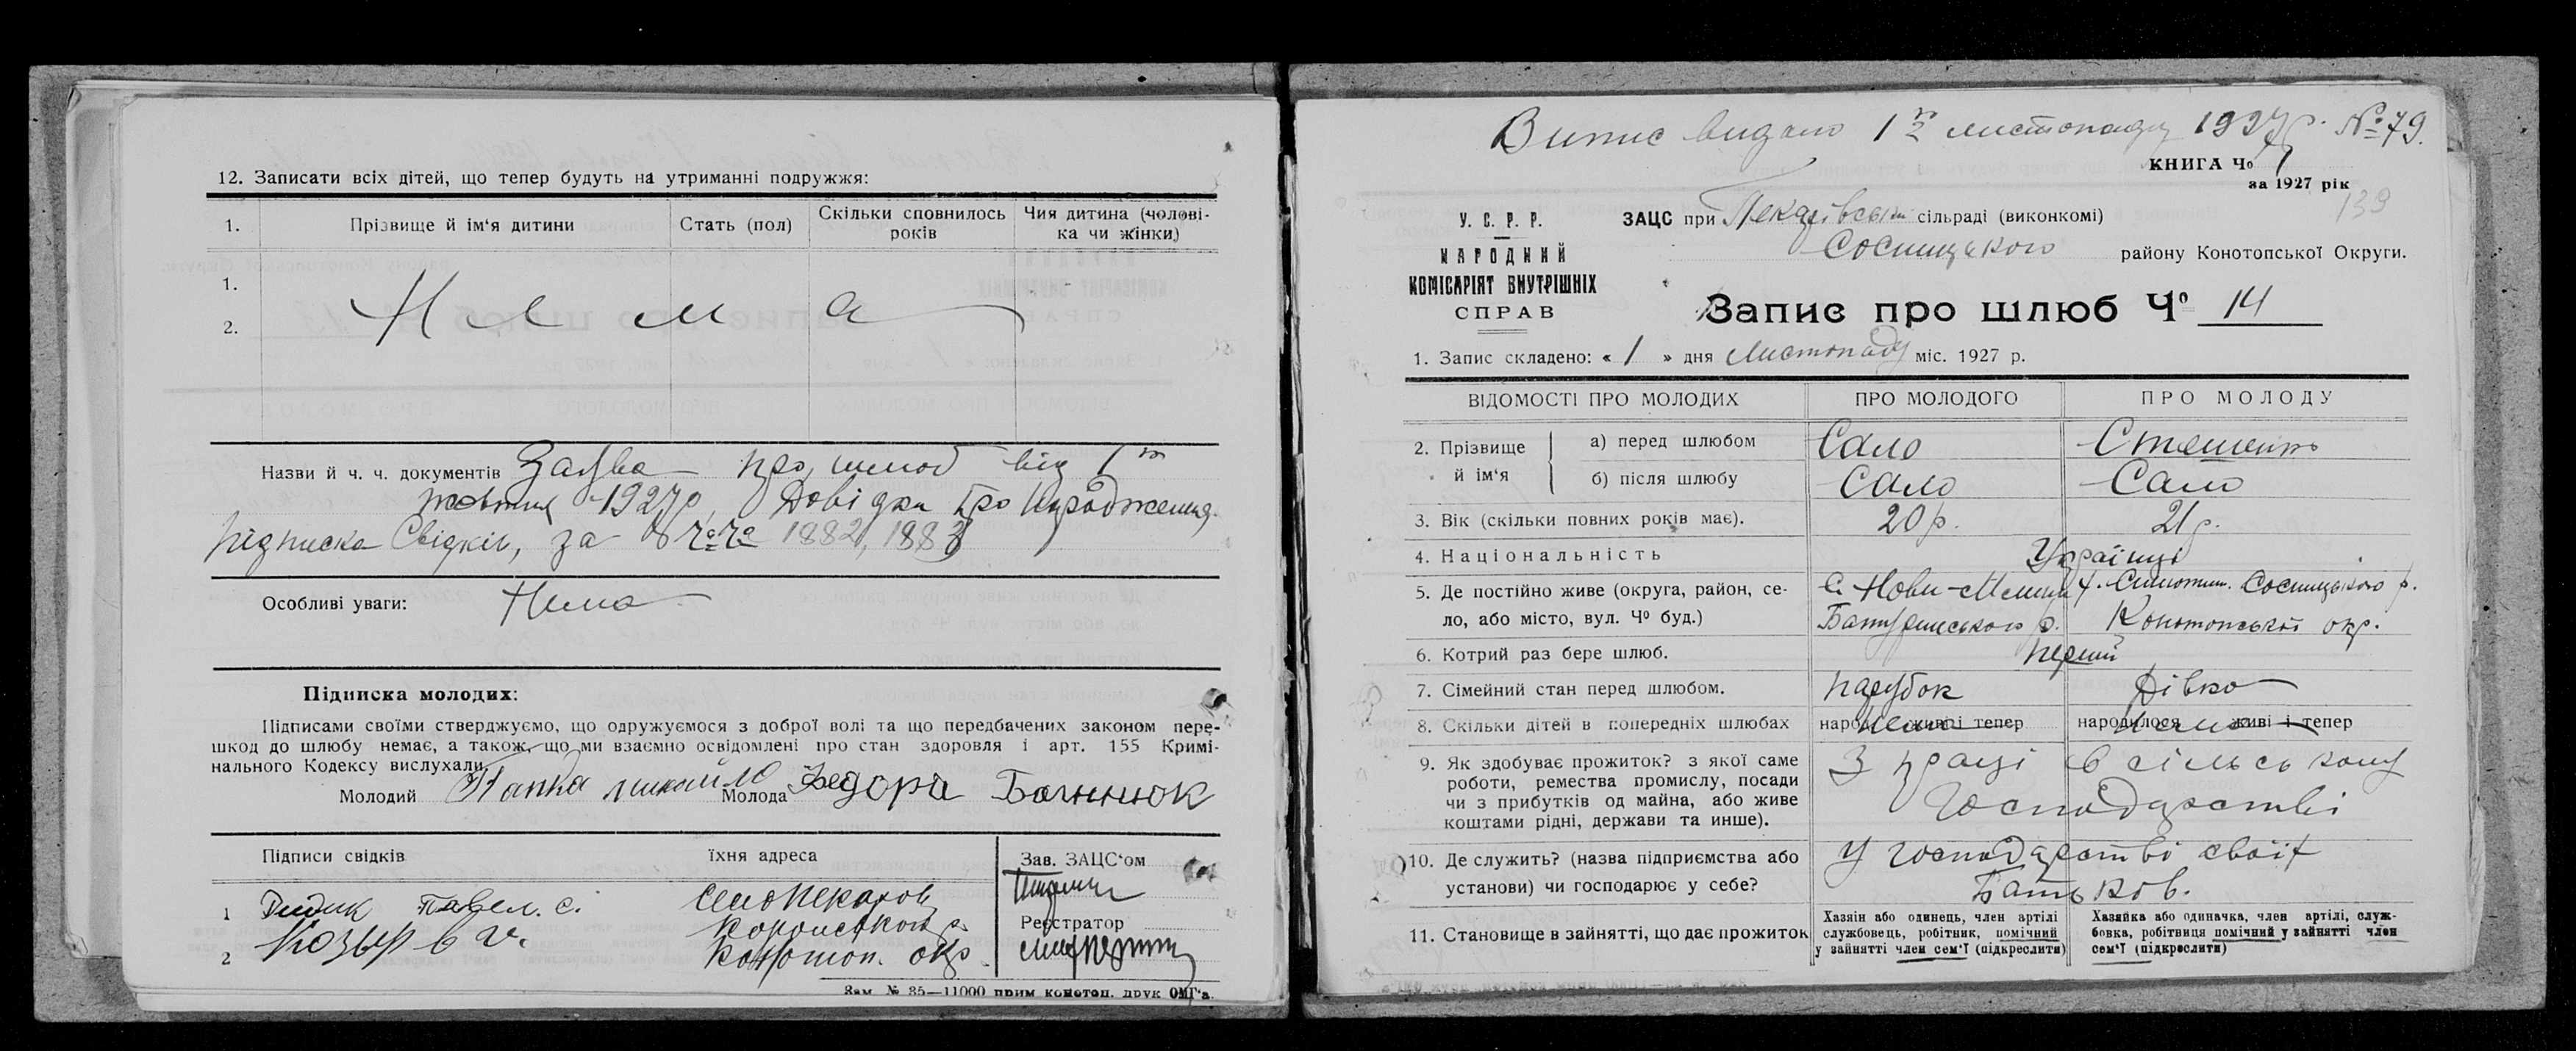 12. Записати всіх дітей, що тепер будуть на утриманні подружжя:
1. Прізвище й ім'я дитини Стать (пол) Скільки сповнилось років Чия дитина (чолові-ка чи жінки)
1.
2.
Нема
Назви й ч. ч. документів Заява про шлюб від 1го
жовтня 1927р, Довідки про народження.
підписка свідків, за ЧоЧо 1882, 1883
Особливі уваги: Нема
Підписка молодих:
Підписами своїми стверджуємо, що одружуємося з доброї волі та що передбачених законом пере-
шкод до шлюбу немає, а також, що ми взаємно освідомлені про стан здоровля і арт. 155 Кримі-
нального Кодексу вислухали.
Молодий Молода Федора
Підписи свідків Їхня адреса Зав. ЗАЦС'ом
1 Дидик Павел. С.
Реєстратор
2 Козыр Конотоп. окр.
Зам. № 35—11000 прим конотоп. друк ОМГ'а.
Випис видано 1го листопаду 1927р. № 79.
КНИГА Чо 1
за 1927 рік
139
У. С. Р. Р.
НАРОДНИЙ
КОМІСАРІЯТ ВНУТРІШНІХ
СПРАВ
ЗАЦС при Пекарівській сільраді (виконкомі)
Сосницького району Конотопської Округи.
Запис про шлюб Чо 14
1. Запис складено: « 1 » дня Листопаду міс. 1927 р.
ВІДОМОСТІ ПРО МОЛОДИХ ПРО МОЛОДОГО ПРО МОЛОДУ
2. Прізвище й ім'я а) перед шлюбом Сало
б) після шлюбу Сало Сало
3. Вік (скільки повних років має). 20 р. 21 р.
4. Національність Українці
5. Де постійно живе (округа, район, се- С. Нови-Млини Сосницького р.
ло, або місто, вул. Чо буд.) Батуринського р. Конотопської окр.
6. Котрий раз бере шлюб. перший
7. Сімейний стан перед шлюбом. парубок дівка
8. Скільки дітей в попередніх шлюбах народ. нема живі і тепер народилося нема живі і тепер
9. Як здобуває прожиток? з якої саме З праці в сільському
роботи, ремества промислу, посади
чи з прибутків од майна, або живе господарстві
коштами рідні, держави та инше).
10. Де служить? (назва підприємства або У господарстві своїх
установи) чи господарює у себе? батьков.
11. Становище в зайнятті, що дає прожиток
Хазяін або одинець, член артілі
службовець, робітник, помічний
у зайнятті член сем'ї (підкреслити)
Хазяйка або одиначка, член артілі, служ-
бовка, робітниця помічний у зайнятті член
сем'ї (підкреслити)